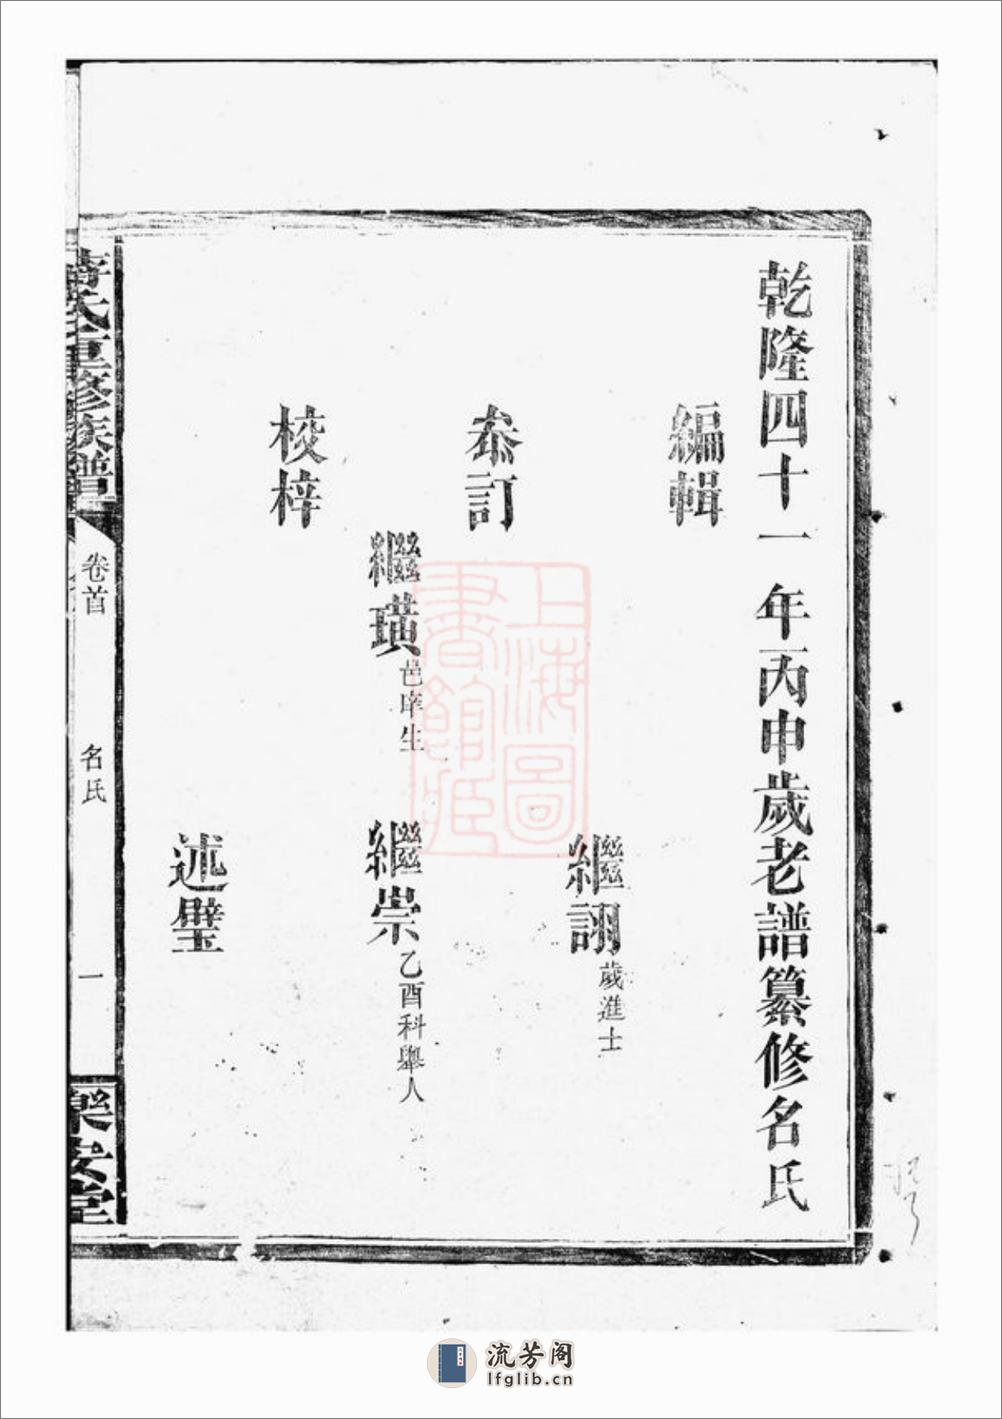 乾隆四十一年丙申歲老譜纂修名氏
編輯
繼詡歲進士
叅訂
繼璜邑庠生
繼崇乙酉科舉人
校梓
述璧
蔣氏重修族譜
卷首
名氏
一
樂安堂
上海圖書館藏
流芳阁
lfglib.cn